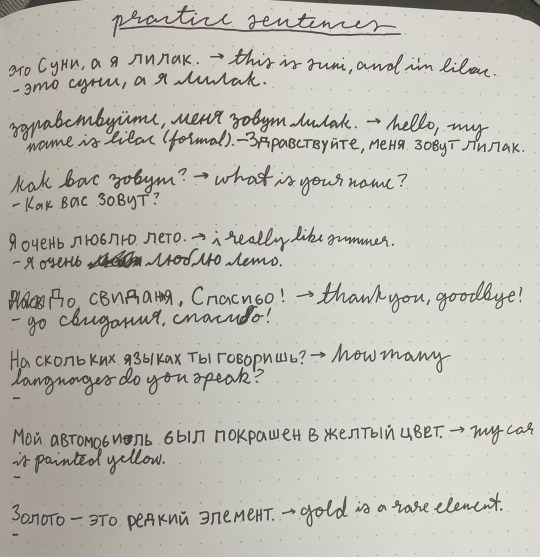 practice sentences
это Суни, а я лилак. → this is suni, and i'm lilac.
- это суни, а я лилак.
здравствуйте, меня зовут лилак. → hello, my
name is lilac (formal). - здравствуйте, меня зовут лилак.
как вас зовут? → what is your name?
- как вас зовут?
я очень люблю лето. → i really like summer.
- я очень люблю лето.
До свиданя, Спасибо! → thank you, goodbye!
- до свидания, спасибо!
На скольких языках ты говоришь? → how many
languages do you speak?
-
Мой автомобиль был покрашен в желтый цвет. → my car
is painted yellow.
-
Золото – это редкий элемент. → gold is a rare element.
-